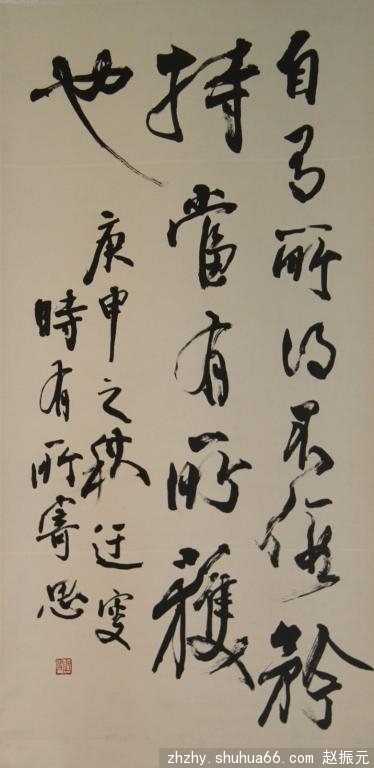 自所得矜
持當有所獲
也
庚申之秋迂叟
時有所寄思
zhzhy.shuhua66.com 赵振元